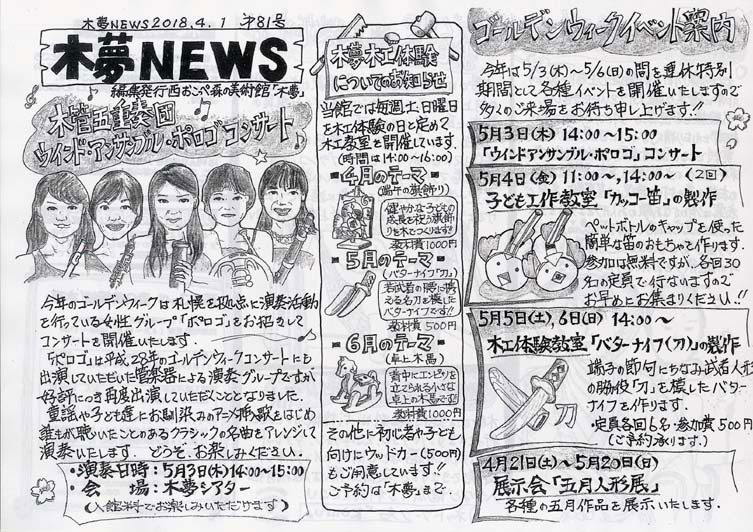 木夢NEWS2018.4.1 第81号
木夢NEWS
編集発行西おこっぺ森の美術館「木夢」
木管五重奏団
ウインド・アンサンブル・ポロゴコンサート
今年のゴールデンウィークは札幌を拠点に演奏活動
を行っている女性グループ「ポロゴ」をお招きして
コンサートを開催いたします。
「ポロゴ」は平成28年のゴールデンウィークコンサートにも
出演していただいた管楽器による演奏グループですが
好評につき再度出演していただくこととなりました。
童謡や子ども達にお馴染みのアニメ挿歌をはじめ
誰もが聴いたことのあるクラシックの名曲をアレンジして
演奏いたします。どうぞ、お楽しみください。
・演奏日時:5月3日(木)14:00~15:00
・会 場:木夢シアター
(入館料でお楽しみいただけます)
木夢木工体験
についてのお知らせ
当館では毎週土、日曜日
を木工体験の日と定めて
木工教室を開催しています。
(時間は14:00~16:00)
4月のテーマ
(端午の旗飾り)
健やかな子どもの
成長を祝う旗飾
りを木でつくります!!
教材費1000円
5月のテーマ
(バターナイフ「刀」)
若武者の腰に携
える名刀を模した
バターナイフです!!
教材費500円
6月のテーマ
(卓上木馬)
背中にエンピツを
立てられる小さな
卓上の木馬です!!
教材費1000円
その他に初心者や子ども
向けにウッドカー(500円)
もご用意しています!!
ご予約は「木夢」まで。
ゴールデンウィークイベント案内
今年は5/3(木)~5/6(日)の間を連休特別
期間として各種イベントを開催いたしますので
多くのご来場をお待ち申し上げます!!
5月3日(木) 14:00~15:00
「ウインドアンサンブル・ポロゴ」コンサート
5月4日(金) 11:00~,14:00~ (2回)
子ども工作教室「カッコー笛」の製作
ペットボトルのキャップを使った
簡単な笛のおもちゃを作ります。
参加は無料ですが、各回30
名の定員で行ないますので
お早めとお集まりください!!
5月5日(土),6日(日) 14:00~
木工体験教室「バターナイフ(刀)」の製作
端午の節句にちなみ武者人形
の脇役「刀」を模したバター
ナイフを作ります。
刀
・定員各回6名・参加費500円
(ご予約承ります。)
4月21日(土)~5月20日(日)
展示会「五月人形展」
各種の五月作品を展示いたします。